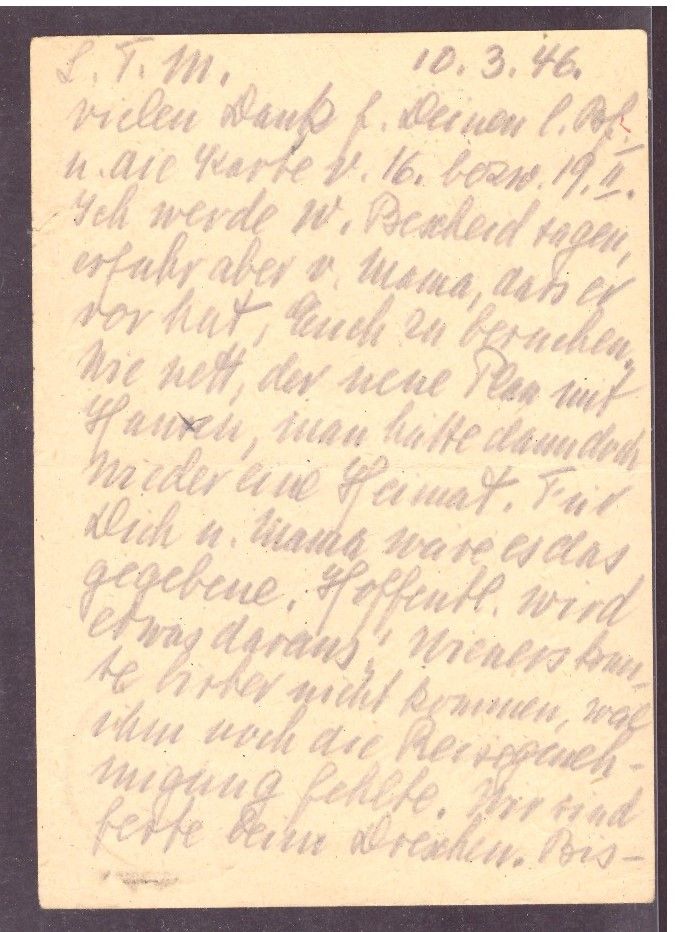 L. T. M. 10. 3. 46.
vielen Dank f. Deinen l. Bf.
u. die Karte v. 16. bezw. 19. II.
Ich werde W. Bescheid sagen,
erfuhr aber v. Mama, dass er
vor hat, Euch zu besuchen.
Wie nett, der neue Plan mit
man hätte dann doch
wieder eine Heimat. Für
Dich u. Mama wäre es das
gegebene. Hoffentl. wird
etwas daraus! Wieners konn-
te bisher nicht kommen, weil
ihm noch die Reisegeneh-
migung fehlte. Wir sind
feste beim Dreschen. Bis-